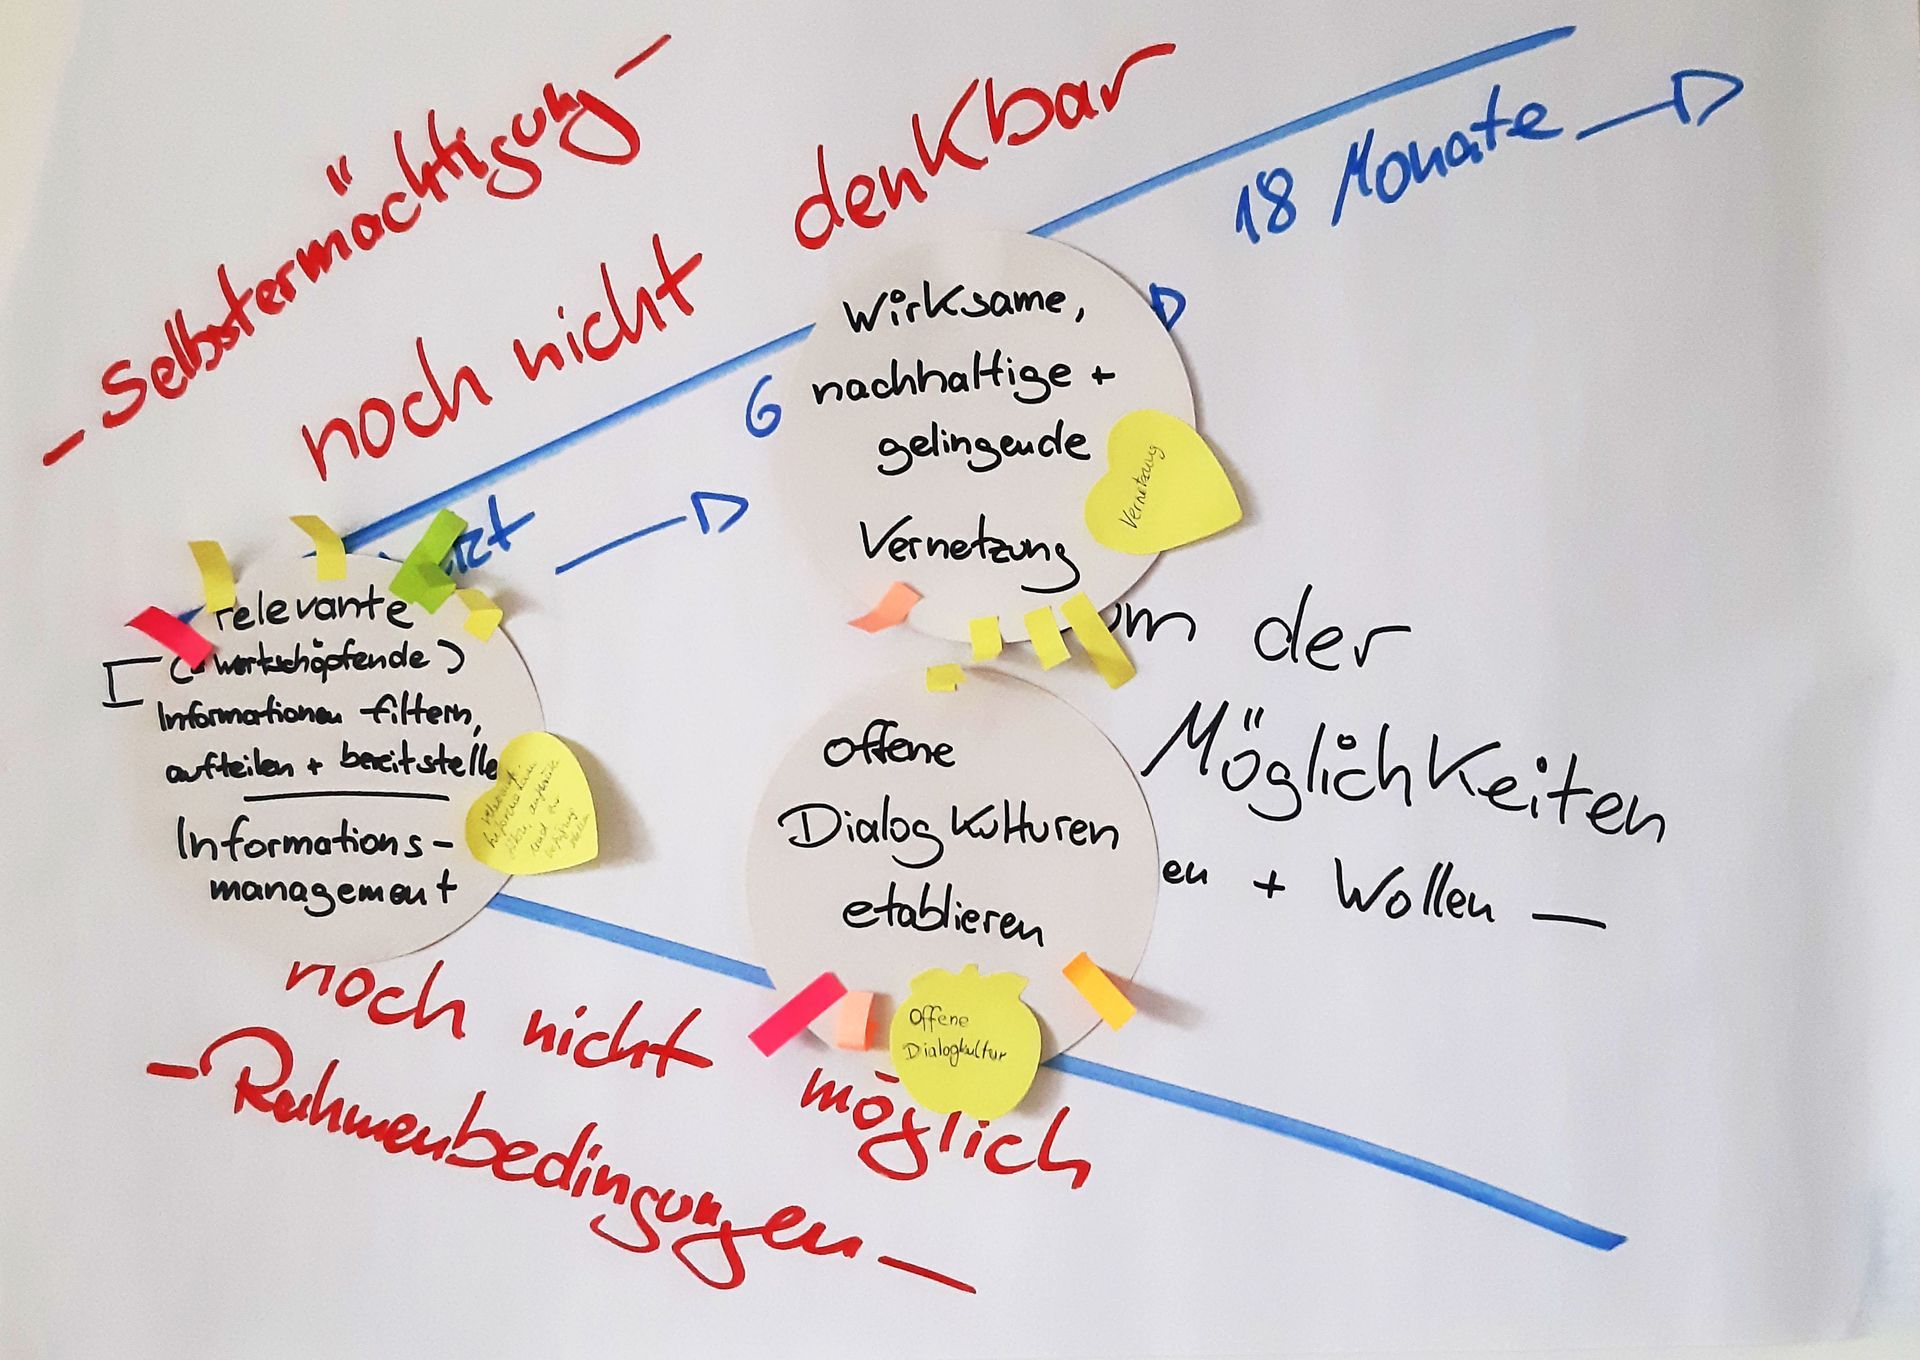 - Selbstermächtigung -
noch nicht denkbar
18 Monate
6
Wirksame,
nachhaltige +
gelingende
Vernetzung
Vernetzung
relevante
(wertschöpfende)
Informationen filtern,
aufteilen + bereitstelle
Informations-
management
der
Möglichkeiten
en + Wollen —
Offene
Dialogkulturen
etablieren
Offene
Dialogkultur
noch nicht möglich
- Rahmenbedingungen -